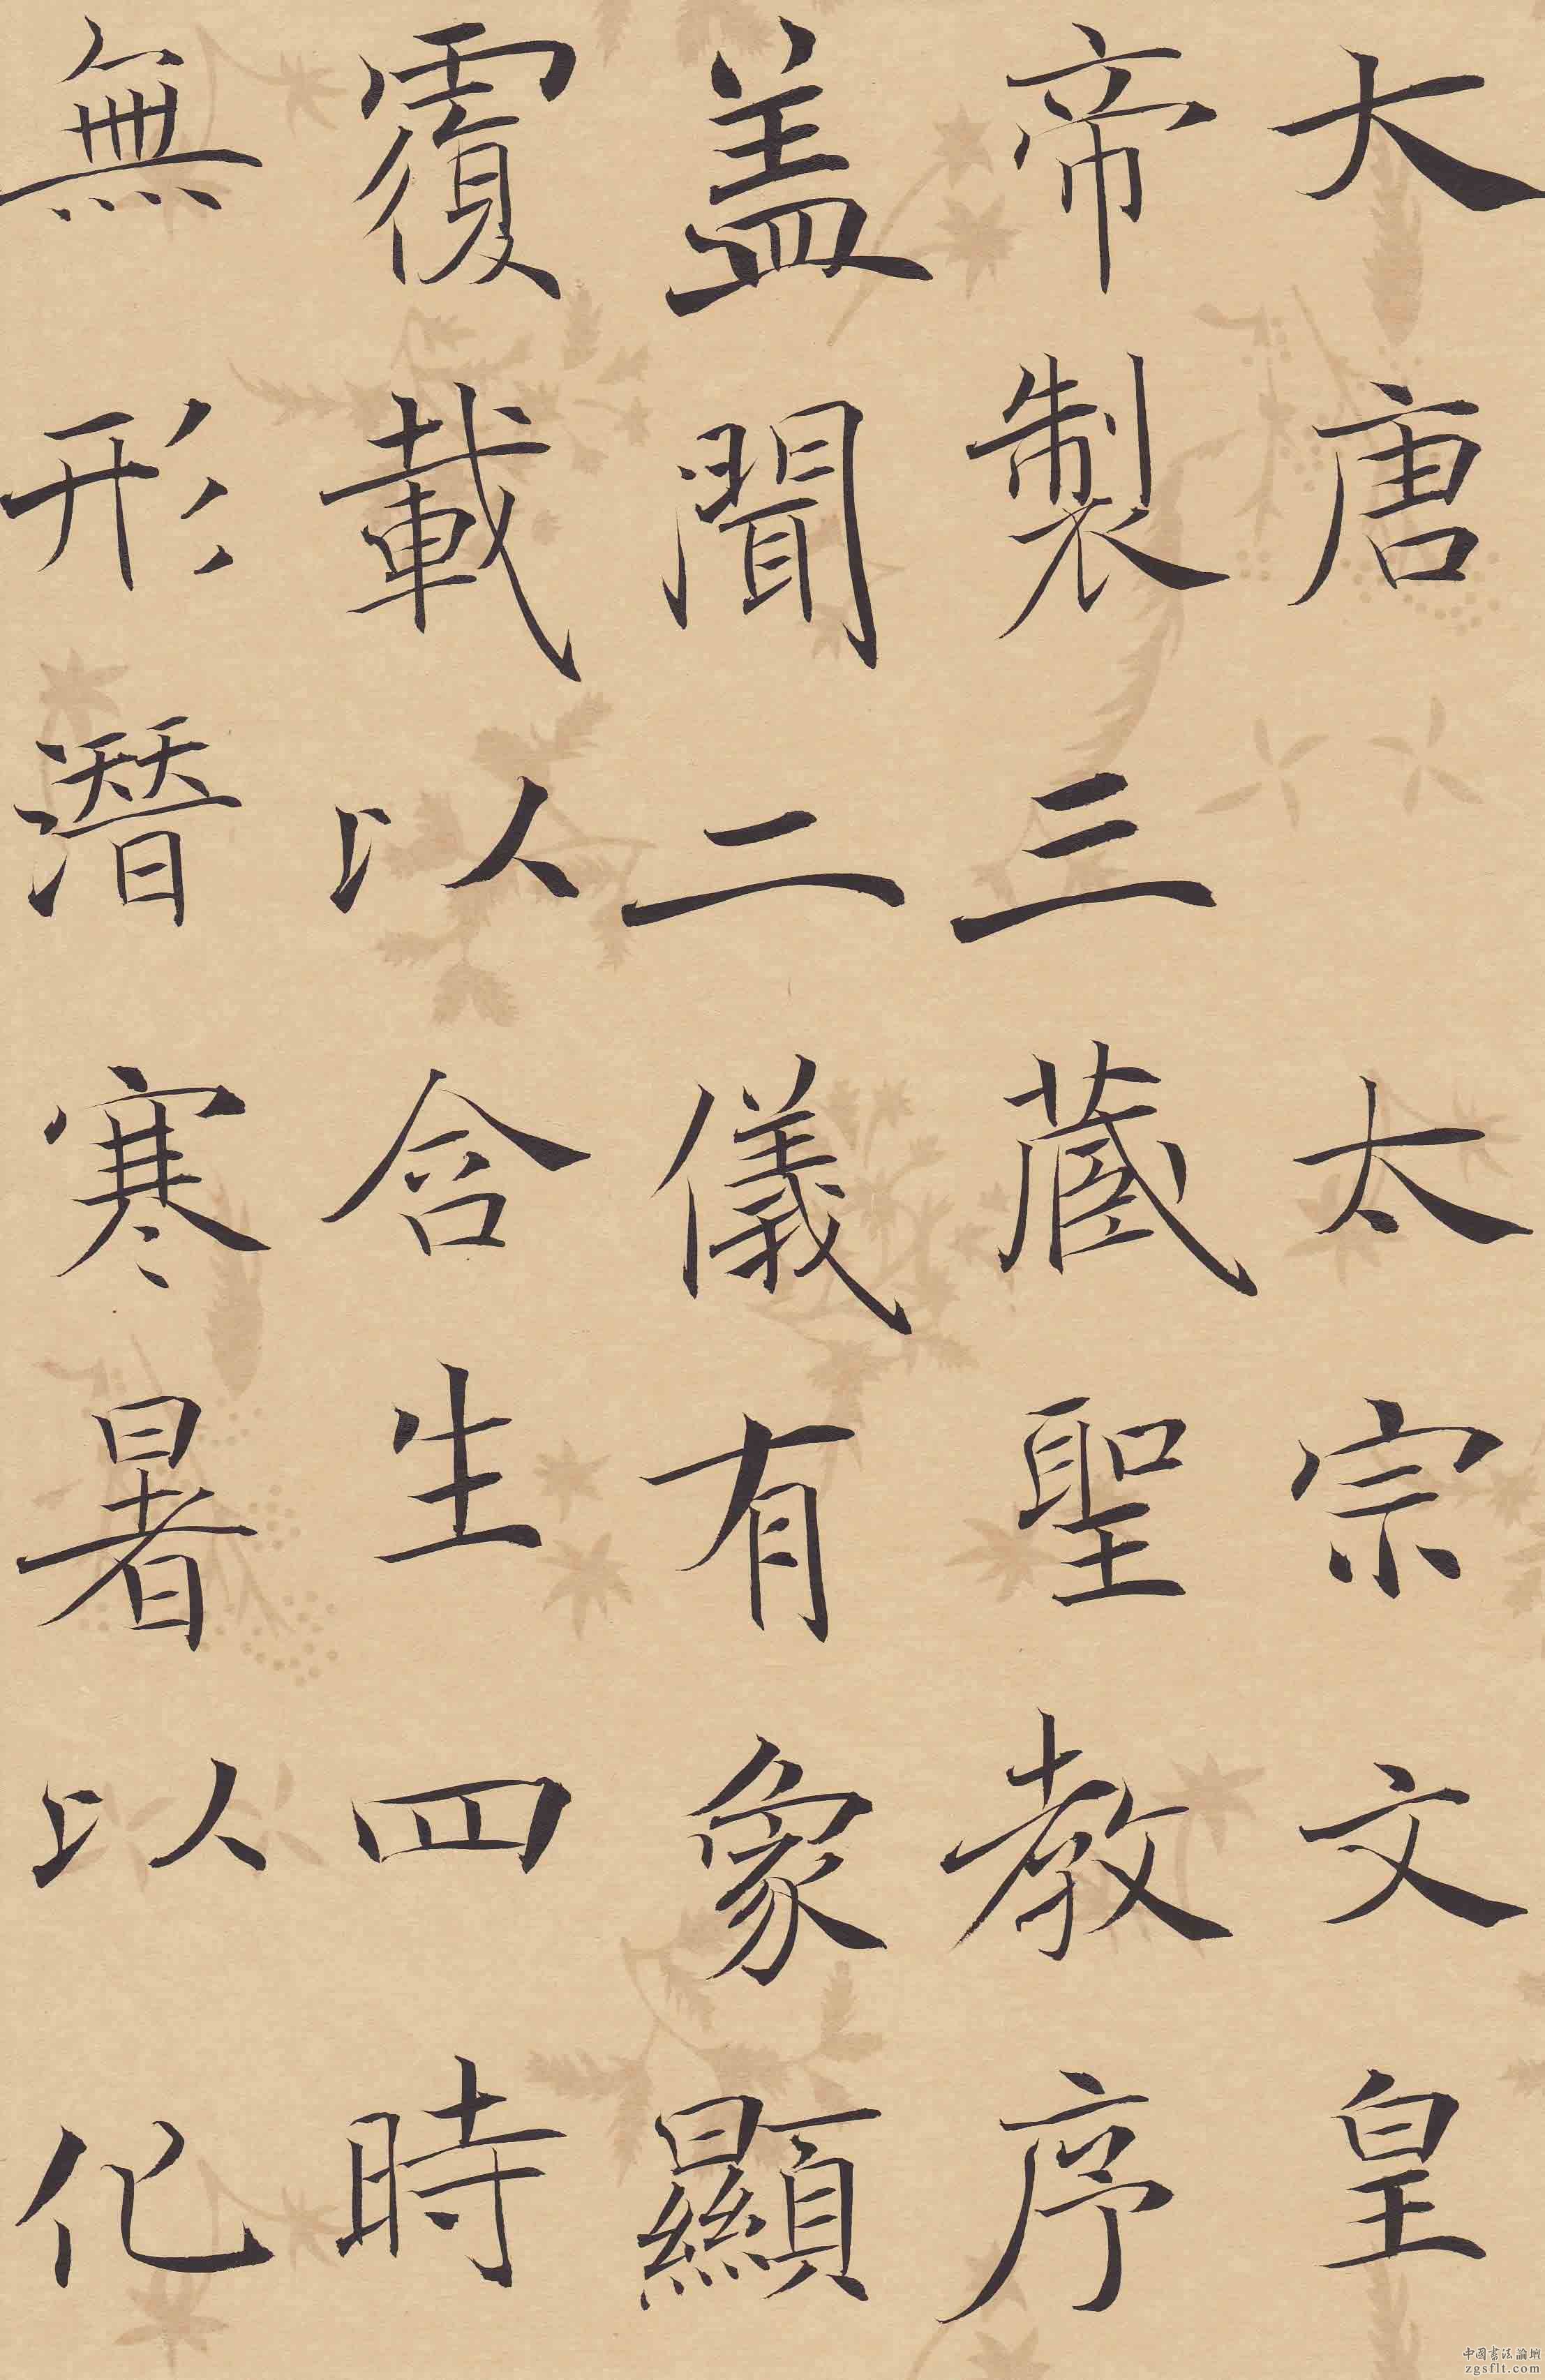 大唐 太宗文皇
帝製三蔵聖教序
盖聞二儀有象顯
覆載以含生四時
無形潛寒暑以化
中國書法論壇
zgsflt.com